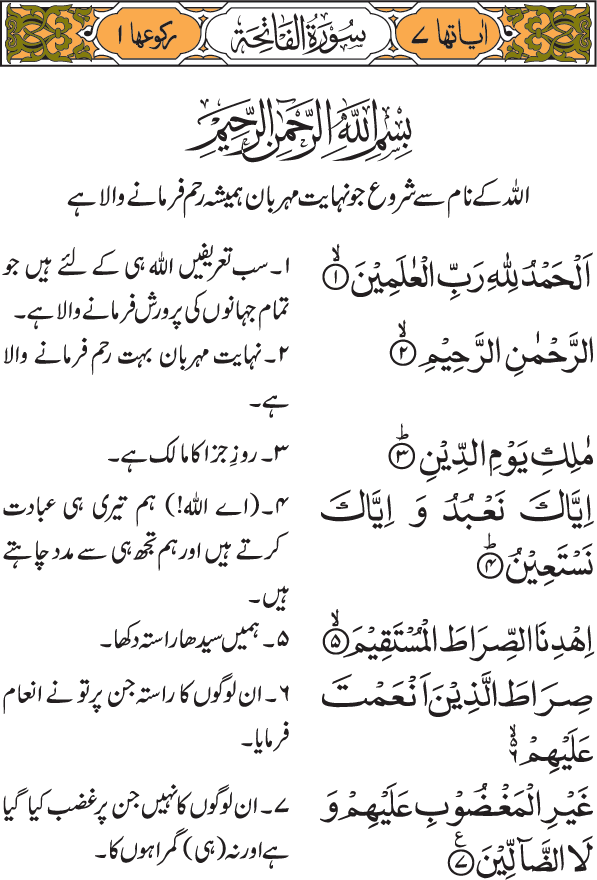 اٰیاتها ۷ سُوْرَةُ الْفَاتِحَةِ رکوعها ۱
بِسْمِ اللّٰهِ الرَّحْمٰنِ الرَّحِیْمِ
اللہ کے نام سے شروع جو نہایت مہربان ہمیشہ رحم فرمانے والا ہے
اَلْحَمْدُ لِلّٰهِ رَبِّ الْعٰلَمِیْنَۙ۝۱
۱۔ سب تعریفیں اللہ ہی کے لئے ہیں جو
تمام جہانوں کی پرورش فرمانے والا ہے۔
الرَّحْمٰنِ الرَّحِیْمِۙ۝۲
۲۔ نہایت مہربان بہت رحم فرمانے والا
ہے۔
مٰلِكِ یَوْمِ الدِّیْنِؕ۝۳
۳۔ روزِ جزا کا مالک ہے۔
اِیَّاكَ نَعْبُدُ وَ اِیَّاكَ
نَسْتَعِیْنُؕ۝۴
۴۔ (اے اللہ!) ہم تیری ہی عبادت
کرتے ہیں اور ہم تجھ ہی سے مدد چاہتے
ہیں۔
اِهْدِنَا الصِّرَاطَ الْمُسْتَقِیْمَۙ۝۵
۵۔ ہمیں سیدھا راستہ دکھا۔
صِرَاطَ الَّذِیْنَ اَنْعَمْتَ
عَلَیْهِمْ ۙ۶
۶۔ ان لوگوں کا راستہ جن پر تو نے انعام
فرمایا۔
غَیْرِ الْمَغْضُوْبِ عَلَیْهِمْ وَ
لَا الضَّآلِّیْنَ۠۝۷
۷۔ ان لوگوں کا نہیں جن پر غضب کیا گیا
ہے اور نہ (ہی) گمراہوں کا۔